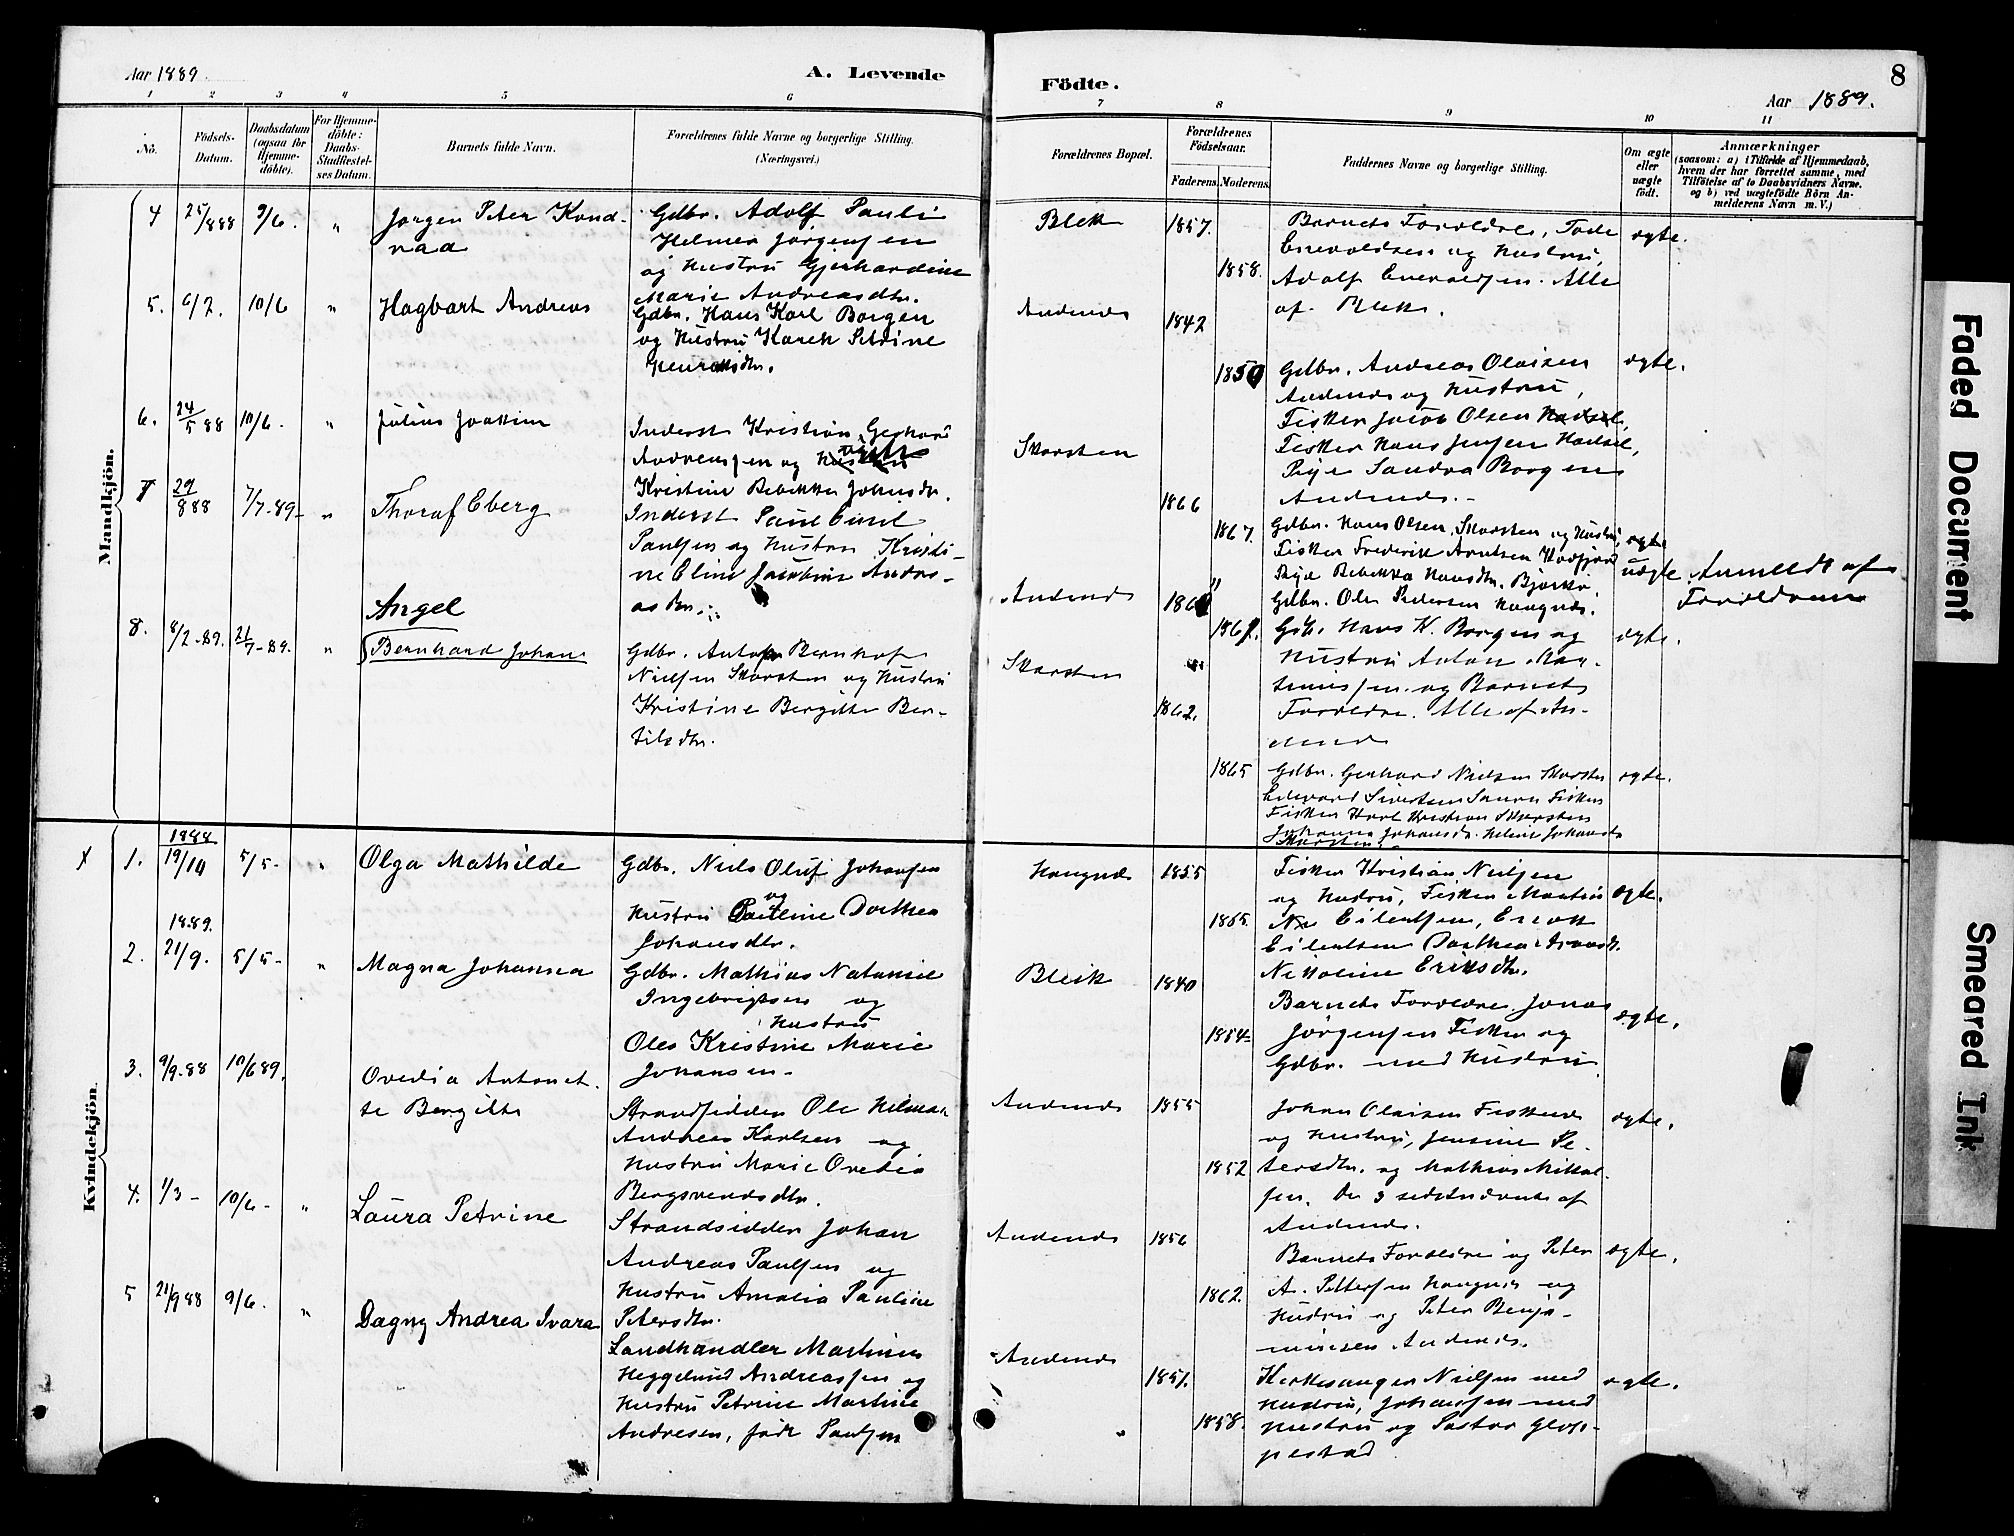 Aar 1889.
A. Levende
Födte.
Aar 1889.
8
1 2 3 4 5 6 7 8 9 10 11
No.
Födsels-Datum.
Daabsdatum (ogsaa for Hjemmedöbte).
For Hjemmedöbte: Daabs-Stadfæstelses Datum.
Barnets fulde Navn.
Forældrenes fulde Navne og borgerlige Stilling.
(Næringsvei.)
Forældrenes Bopæl.
Forældrenes Födselsaar.
Faderens. Moderens.
Faddernes Navne og borgerlige Stilling.
Om ægte eller uægte födt.
Anmærkninger
(saasom: a) i Tilfælde af Hjemmedaab, hvem der har forrettet samme, med Tilföielse af to Daabsvidners Navne, og b) ved uægtefödte Börn Anmelderens Navn m. V.)
Mandkjön.
4 25/888 9/6. " Jørgen Peter Kond-
raa
Gdbr. Adolf Pauli
Helmer Jørgensen
og Hustru Gjerhardine
Marie Andreasdtr.
Bleik 1857. 1858.
Barnets Forældre, Tobe
Enevoldsen og Hustru,
Adolf Enevoldsen. Alle
af Bleik.
ægte.
5. 6/2. 10/6 " Hagbart Andreas
Gdbr. Hans Karl Borgen
og Hustru Karen Petrine
Henriksdtr.
Andenes 1842 1850
Gdbr. Andreas Olaisen
Andenes og Hustru,
Fisker Jacob Olsen Hadsel,
Fisker Hans Jensen Hadsel,
Pige Sandra Borgen
Andenes.
ægte.
6. 24/5 88 10/6. " Julius Joakim
Inderst Kristian Gerhard
Andreassen og Hustru
Kristine Bebekka Johnsdtr.
Skarsten 1866 1867.
Gdbr. Hans Olsen, Skarsten og Hustru,
Fisker Frederik Arntsen
Pige Bebekka Hansdtr. Bjarkø.
Gdbr. Ole Pedersen Haugnes.
ægte
7 29/888 7/7-89- " Thoraf Eberg
Inderst Paul Emil
Paulsen og Hustru Kristi-
ne Eline Jacobine Andre-
asdtr.
Andenes
Gdb. Hans K. Borgen og
Hustru Anton Mar-
tinussen og Barnets
Forældre. Alle af An-
denes
uægte Anmeldt af
Forældrene
8. 8/2-89. 21/7-89. " Angel
Bernhard Johan
Gdbr. Anton Bernhof
Nielsen Skarsten og Hustru
Kristine Bergitte Ber-
tilsdtr.
Skarsten 1862. 1865
Gdbr. Gerhard Nielsen Skarsten
Edevard Sivertsen Fisker
Fisker Karl Kristian Skarsten
Johanna Johansdr. Helene Johansdr
Skarsten.
ægte.
Kvindekjön.
1888
1. 19/10 5/5- " Olga Mathilde
Gdbr. Niels Oluf Johansen
og
Hustru Pauline Dorthea
Johansdtr.
Haugnes 1855 1865.
Fisker Kristian Nielsen
og Hustru, Fisker Martin
Eilertsen,
Eilertsen Dorthea
Nikoline Eriksdtr.
ægte.
1889.
2. 21/9. 5/5- " Magna Johansea
Gdbr. Mathias Nataniel
Ingebrigtsen og
Hustru
Oles Kristine Marie
Johansen-
Bleik 1840 1854
Barnets Forældre Jonas
Jörgensen Fisker og
Gdbr. med Hustru
ægte.
3. 9/9-88 10/689. Ovedia Antonet-
te Bergitte
Strandsidder Ole Helmer
Andreas Karlsen og
Hustru Marie Ovedia
Bergsvendsdtr.
Andenes 1855 1852
Johan Olaisen Fiskenes
og Hustru, Jensine Pe-
tersdtr. og Mathias Mikkel-
sen. De 3 sidstnævnte af
Andenes.
ægte.
4. 1/3- 10/6- " Laura Petrine
Strandsidder Johan
Andreas Paulsen og
Hustru Amalia Pauline
Petersdtr.
Andenes 1856 1862.
Barnets Forældre og Peter
A. Pettersen Haugnes og
Hustru og Peter Benja-
minsen Andenes.
ægte.
5 21/988 9/6. " Dagny Andrea Ivara
Landhandler Martinus
Heggelund Andreassen og
Hustru Petrine Martine
Andresen, født Paulsen
Andenes 1851. 1858.
Kirkesanger Nielsen med
Hustru, Johansen med
Hustru og Pastor Glop-
pestad
ægte.
Faded Document
Smeared Ink